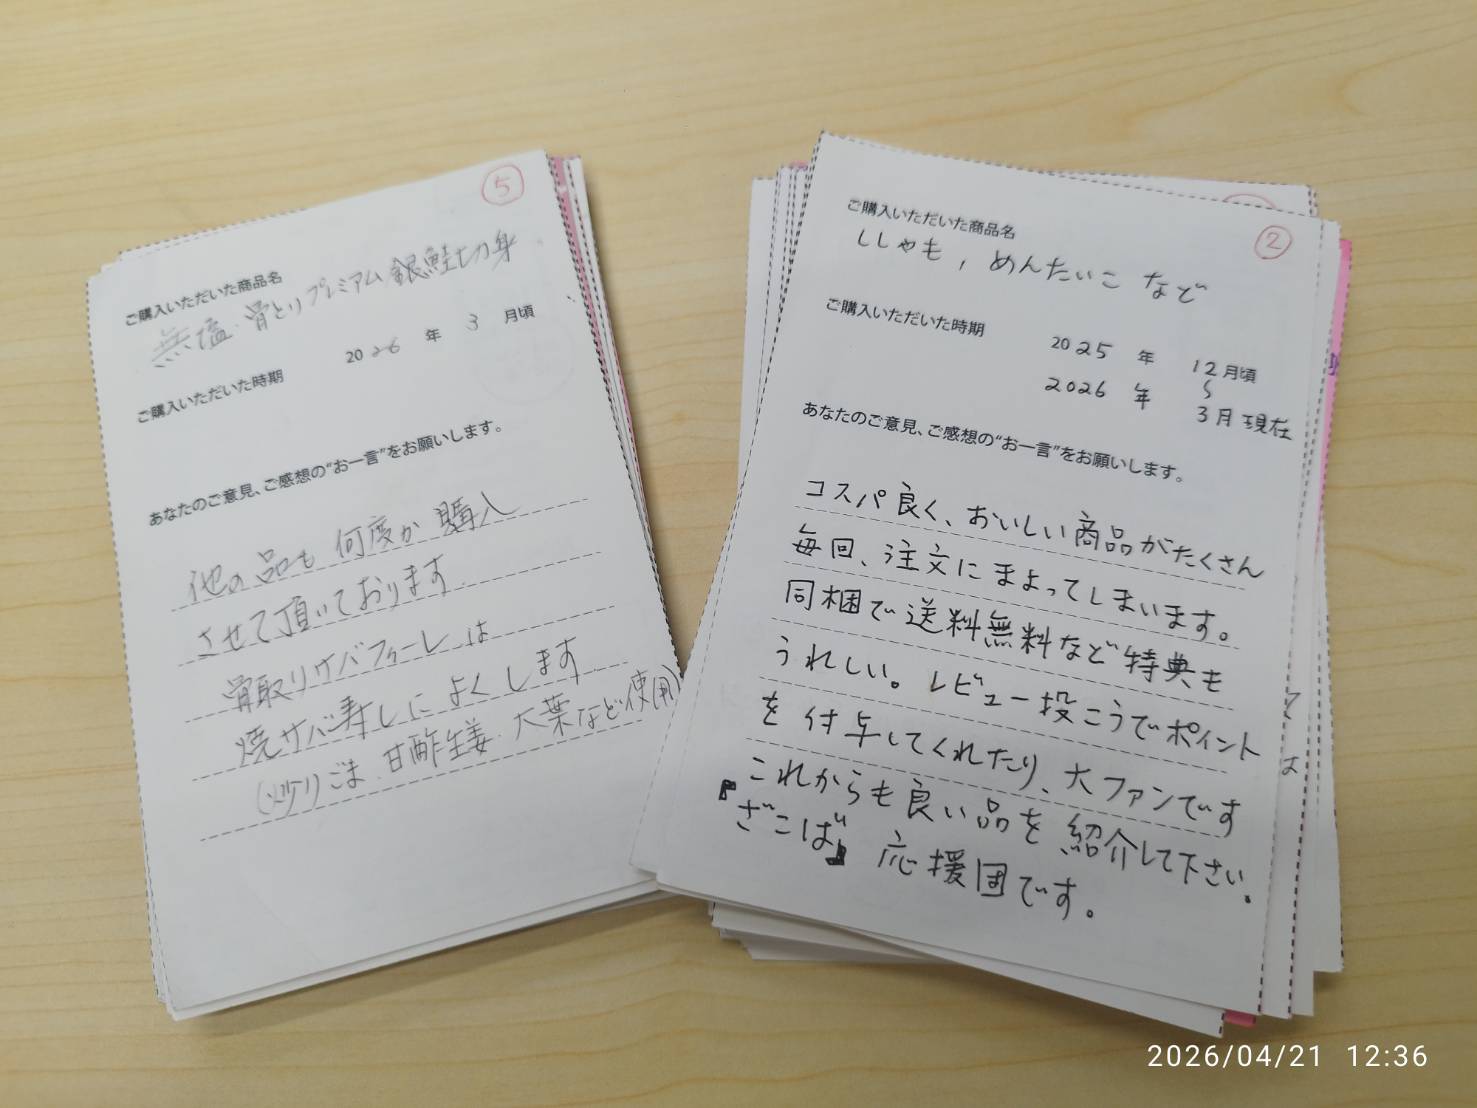 ⑤
ご購入いただいた商品名
無塩・骨とりプレミアム銀鮭切身
ご購入いただいた時期
2026 年 3 月頃
あなたのご意見、ご感想の“お一言”をお願いします。
他の品も何度か購入
させて頂いております
骨取りサバフィーレは
焼サバ寿しによくします
(炒りごま、甘酢生姜、大葉など使用)
②
ご購入いただいた商品名
ししゃも, めんたいこ など
ご購入いただいた時期
2025 年 12月頃
2026 年 3月現在
あなたのご意見、ご感想の“お一言”をお願いします。
コスパ良く、おいしい商品がたくさん
毎回、注文にまよってしまいます。
同梱で送料無料など特典も
うれしい。レビュー投こうでポイント
を付与してくれたり、大ファンです
これからも良い品を紹介して下さい。
『ざこば』応援団です。
2026/04/21 12:36